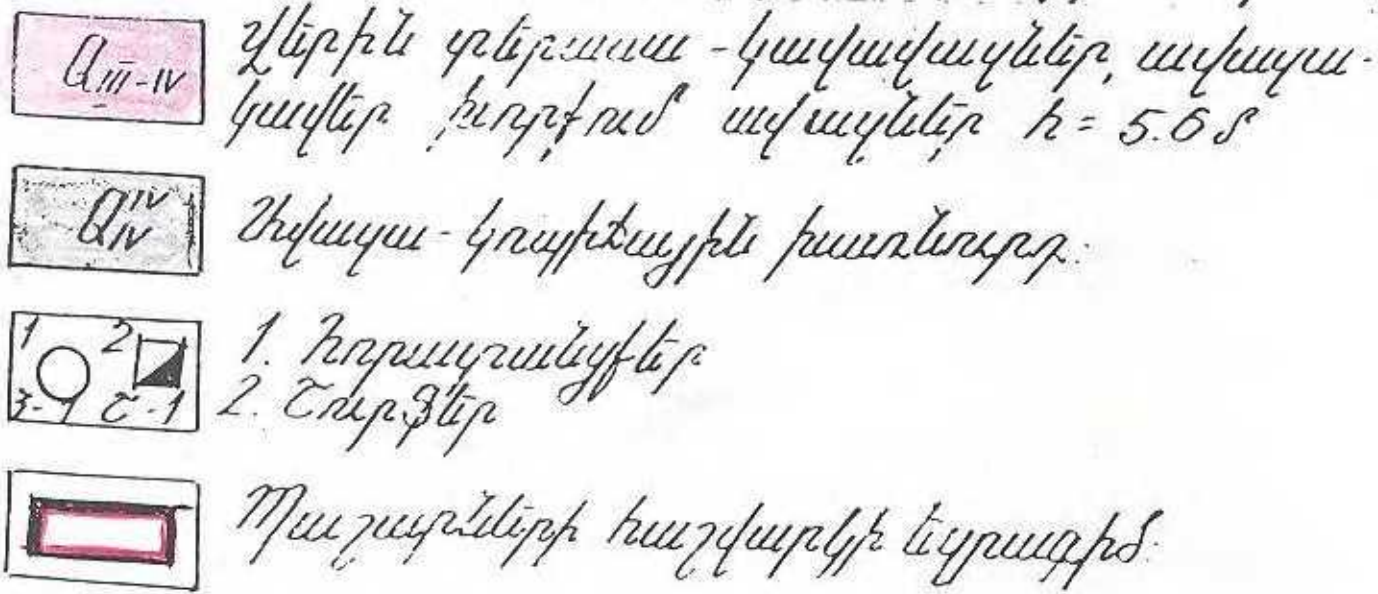 Q III-IV Վերին տերասա - կավավազներ, ավազա-
կավեր խորքում ավազներ h = 5.6 մ
Q IV IV Ավազա - կոպիճային խառնուրդ.
1 2 1. Հորատանցքեր
3-1 Շ-1 2. Շուրֆեր
Պաշարների հաշվարկի եզրագիծ.